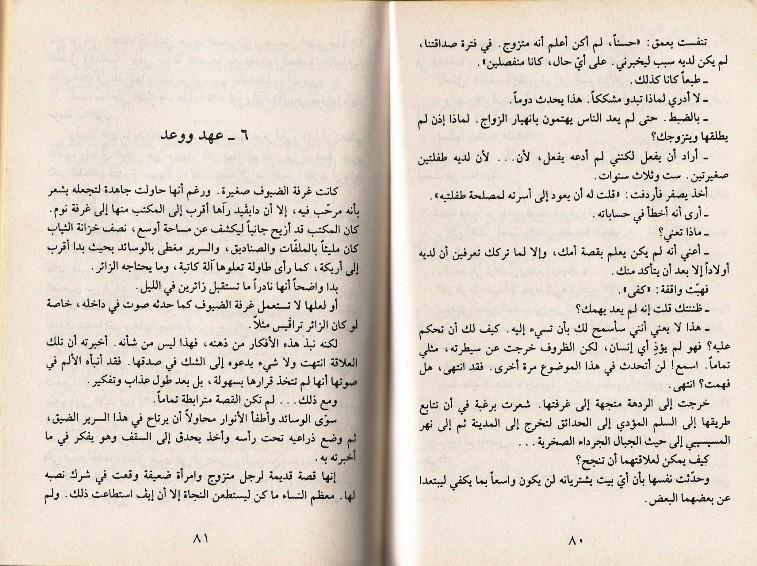 تنفست بعمق: «حسناً، لم أكن أعلم أنه متزوج. في فترة صداقتنا،
لم يكن لديه سبب ليخبرني. على أيّ حال، كانا منفصلين».
ـ طبعاً كانا كذلك.
ـ لا أدري لماذا تبدو مشككاً. هذا يحدث دوماً.
ـ بالضبط. حتى لم يعد الناس يهتمون بانهيار الزواج. لماذا إذن لم
يطلقها ويتزوجك؟
ـ أراد أن يفعل لكنني لم أدعه يفعل، لأن... لأن لديه طفلتين
صغيرتين. ست وثلاث سنوات.
أخذ يصفر فأردفت: «قلت له أن يعود إلى أسرته لمصلحة طفلتيه».
ـ أرى أنه أخطأ في حساباته.
ـ ماذا تعني؟
ـ أعني أنه لم يكن يعلم بقصة أمك، وإلا لما تركك تعرفين أن لديه
أولاداً إلا بعد أن يتأكد منك.
فهبّت واقفة: «كفى».
ـ ظننتك قلت إنه لم يعد يهمك؟
ـ هذا لا يعني أنني سأسمح لك بأن تسيء إليه. كيف لك أن تحكم
عليه؟ فهو لم يؤذِ أي إنسان، لكن الظروف خرجت عن سيطرته، مثلي
تماماً. اسمع! لن أتحدث في هذا الموضوع مرة أخرى. فقد انتهى، هل
فهمت؟ انتهى.
خرجت إلى الردهة متجهة إلى غرفتها. شعرت برغبة في أن تتابع
طريقها إلى السلم المؤدي إلى الحدائق لتخرج إلى المدينة ثم إلى نهر
المسيسيبي إلى حيث الجبال الجرداء الصخرية...
كيف يمكن لعلاقتهما أن تنجح؟
وحدّثت نفسها بأن أيّ بيت يشتريانه لن يكون واسعاً بما يكفي ليبتعدا
عن بعضهما البعض.
٨٠
٦ ـ عهد ووعد
كانت غرفة الضيوف صغيرة. ورغم أنها حاولت جاهدة لتجعله يشعر
بأنه مرحّب فيه، إلا أن دايڤيد رآها أقرب إلى المكتب منها إلى غرفة نوم.
كان المكتب قد أزيح جانباً ليكشف عن مساحة أوسع، نصف خزانة الثياب
كان مليئاً بالملفّات والصناديق، والسرير مغطى بالوسائد بحيث بدا أقرب
إلى أريكة، كما رأى طاولة تعلوها آلة كاتبة، وما يحتاجه الزائر.
بدا واضحاً أنها نادراً ما تستقبل زائرين في الليل.
أو لعلها لا تستعمل غرفة الضيوف كما حدثه صوت في داخله، خاصة
لو كان الزائر تراڤيس مثلاً.
لكنه نبذ هذه الأفكار من ذهنه، فهذا ليس من شأنه. أخبرته أن تلك
العلاقة انتهت ولا شيء يدعوه إلى الشك في صدقها. فقد أنبأه الألم في
صوتها أنها لم تتخذ قرارها بسهولة، بل بعد طول عذاب وتفكير.
ومع ذلك... لم تكن القصة مترابطة تماماً.
سوّى الوسائد وأطفأ الأنوار محاولاً أن يرتاح في هذا السرير الضيق،
ثم وضع ذراعيه تحت رأسه وأخذ يحدق إلى السقف وهو يفكر في ما
أخبرته به.
إنها قصة قديمة لرجل متزوج وامرأة ضعيفة وقعت في شرك نصبه
لها. معظم النساء ما كن ليستطعن النجاة إلا أن إيڤ استطاعت ذلك. ولم
٨١